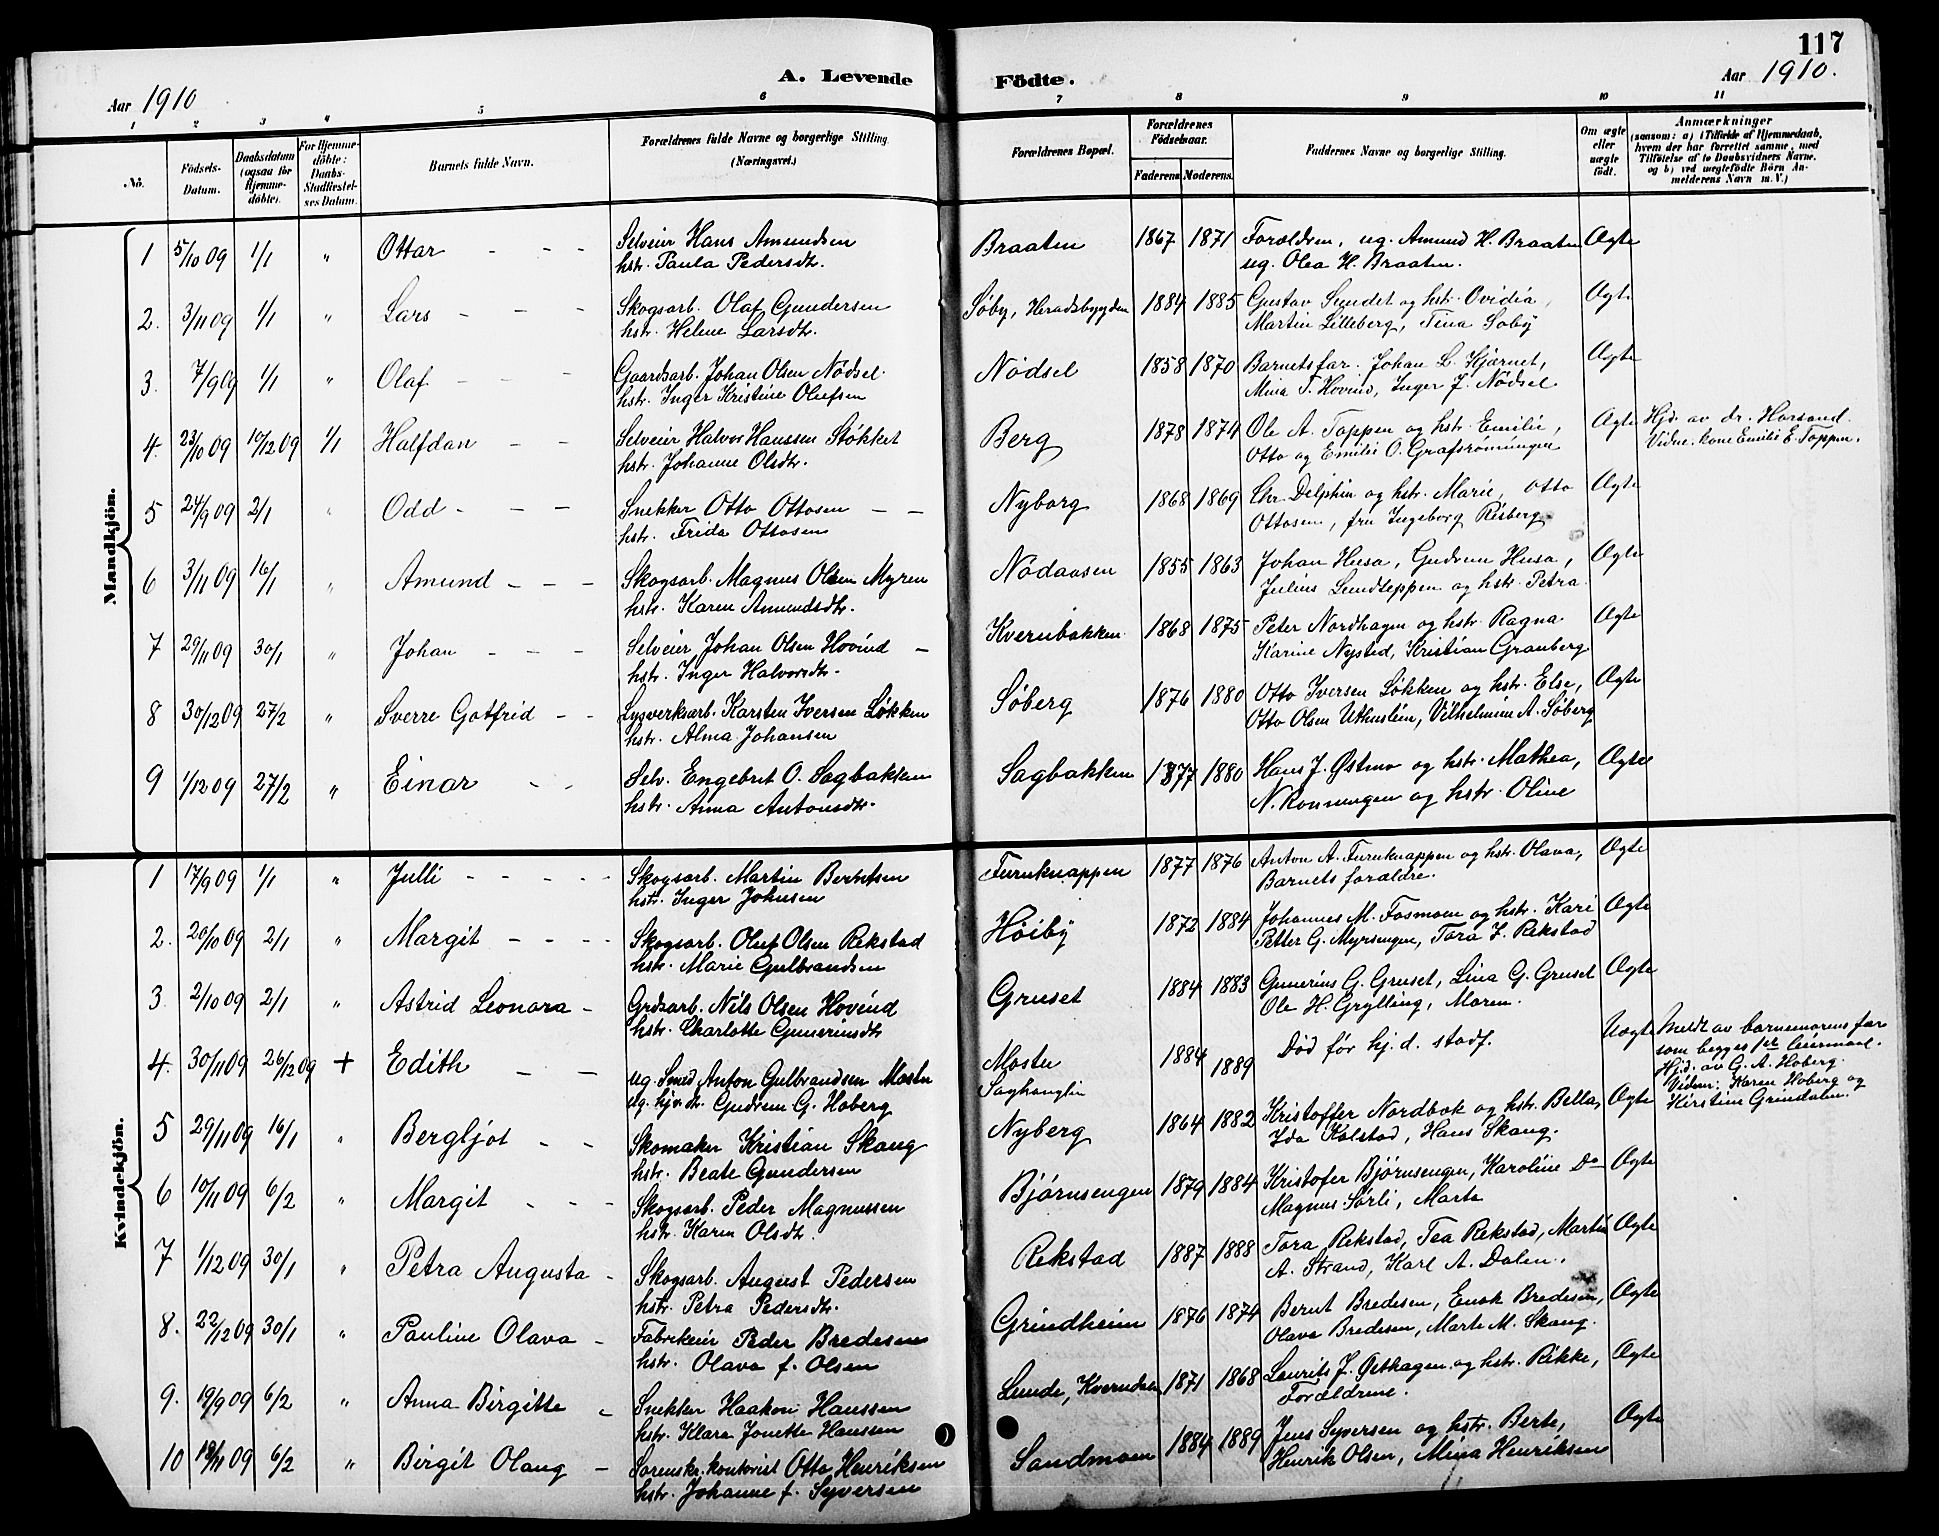 117
A. Levende Födte.
Aar 1910
Aar 1910.
1 2 3 4 5 6 7 8 9 10 11
No.
Födsels-Datum.
Daabsdatum (ogsaa for Hjemme-döbte).
For Hjemme-döbte: Daabs-Stadfæstel-ses Datum.
Barnets fulde Navn.
Forældrenes fulde Navne og borgerlige Stilling (Næringsvei.)
Forældrenes Bopæl.
Forældrenes Födselsaar.
Faderens Moderens.
Faddernes Navne og borgerlige Stilling.
Om ægte eller uægte født.
Anmærkninger
(saasom: a) i Tilfælde af Hjemmedaab,
hvem der har forrettet samme, med
Tilföielse af to Daabsvidners Navne.
og b) ved uægtefödte Börn An-
melderens Navn m. V.)
Mandkjön.
1 5/10 09 1/1 " Ottar - - - Selveier Hans Amundsen Braaten 1867 1871 Forældren, ug. Amund H. Braaten Ægte
hstr. Paula Pedersdtr. ug. Olea H. Braaten.
2. 3/11 09 1/1 " Lars - - - Skogsarb. Olaf Gundersen Søby, Heradsbygden 1884 1885 Gustav Sundet og hstr. Ovidia, Ægte
hstr. Helene Larsdtr. Martin Lilleberg, Tina Soby
3. 7/9 09 1/1 " Olaf - - - Gaardsarb. Johan Olsen Nödsel Nödsel 1858 1870 Barnets far. Johan L. Hjernet, Ægte
hstr. Inger Kristine Olufsen Mina T. Hovind, Inger J. Nödsel
4. 23/10 09 10/12 09 1/1 Halfdan - - Selveier Halvor Hanssen Støkket Berg 1878 1874 Ole A. Toppen og hstr. Emilie, Ægte Hjd. av dr. Harsand.
hstr. Johanne Olsdtr. Otto og Emilie O. Grafsrønningen Vidne. kone Emilie E. Toppen.
5 24/9 09 2/1 " Odd - - - Snekker Otto Ottosen - - Nyborg 1868 1869 Chr. Delphin og hstr. Marie, Otto Ægte
hstr. Frida Ottosen Ottosen, fru Ingeborg Risberg
6 3/11 09 16/1 " Amund - - - Skogsarb. Magnus Olsen Myren Nödaasen 1855 1863 Johan Husa, Gudrun Husa, Ægte
hstr. Karen Amundsdtr. Julius Lundteppen og hstr. Petra.
7 29/11 09 30/1 " Johan - - - Selveier Johan Olsen Hovind - Kvernbakken 1868 1875 Peter Nordhagen og hstr. Ragna. Ægte
hstr. Inger Halvorsdtr. Karine Nysted, Kristian Granberg
8 30/12 09 27/2 " Sverre Gotfrid - - Lysverksarb. Karsten Iversen Løkken Søberg 1876 1880 Otto Iversen Løkken og hstr. Else, Ægte
hstr. Alma Johansen Otto Olsen Uthuslien, Vilhelmine A. Søberg
9 1/12 09 27/2 " Einar - - Selv. Engebret O. Sagbakken Sagbakken 1877 1880 Hans J. Østmo og hstr. Mathea, Ægte
hstr. Anna Antonsdtr. N. Ronningen og hstr. Oline
Kvindekjön.
1 17/9 09 1/1 " Julli - - - - - Skogsarb. Martin Berntsen Furuknappen 1877 1876 Anton A. Furuknappen og hstr. Olava, Ægte
hstr. Inger Johnsen Barnets forældre.
2. 20/10 09 2/1 " Margit - - - - Skogsarb. Oluf Olsen Rekstad Höiby 1872 1884 Johannes M. Fosmoen og hstr. Kari Ægte
hstr. Marie Gulbrandsen Petter G. Myrsengen, Tora J. Rekstad
3. 2/10 09 2/1 " Astrid Leonora - Grdsarb. Nils Olsen Hovind Gruset 1884 1883 Gunerius G. Gruset, Lina G. Gruset Ægte
hstr. Charlotte Gunneriusdtr Ole H. Grylling, Maren.
4. 30/11 09 26/12 09 + Edith - - ug. Smed Anton Gulbrandsen Mostu Mostu 1884 1889 Død før hj. d. stadf. Uægte Meldt av barnemorens far
ug. hjv. dr. Gudrun G. Hoberg Saghauglin som begges 1ste leiermaal.
Hjd. av G. A. Hoberg.
Vidner: Karen Hoberg og
Kirstine Grindalen.
5 29/11 09 16/1 " Bergljot - - Skomaker Kristian Skang Nyberg 1864 1882 Kristoffer Nordbok og hstr. Bella, Ægte
hstr. Beate Gundersen Ida Kolstad, Hans Skang.
6 10/11 09 6/2 " Margit - - - Skogsarb. Peder Magnussen Bjørnsengen 1879 1884 Kristofer Bjørnsengen, Karoline Do Ægte
hstr. Karen Olsdtr. Magnus Sørli, Marte
7 1/12 09 30/1 " Petra Augusta - Skogsarb. August Pedersen Rekstad 1887 1888 Tora Rekstad, Tea Rekstad, Martin Ægte
hstr. Petra Pedersdtr. A. Strand, Karl A. Dalen.
8. 22/12 09 30/1 " Pauline Olava - Fabrikeier Peder Bredesen Grindheim 1876 1874 Bernt Bredesen, Enok Bredesen, Ægte
hstr. Olava f. Olsen Olava Bredesen, Marte M. Skang.
9. 19/9 09 6/2 " Anna Birgitte - Snekker Haakon Hanssen Lunde, Kverndalen 1871 1868 Laurits J. Østhagen og hstr. Rikke, Ægte
hstr. Klara Jonette Hanssen Forældrene.
10 19/11 09 6/2 " Birgit Olaug - Sorenskr. kontorist Otto Henriksen Sandmoen 1884 1889 Jens Syversen og hstr. Berte, Ægte
hstr. Johanne f. Syversen Henrik Olsen, Mina Henriksen